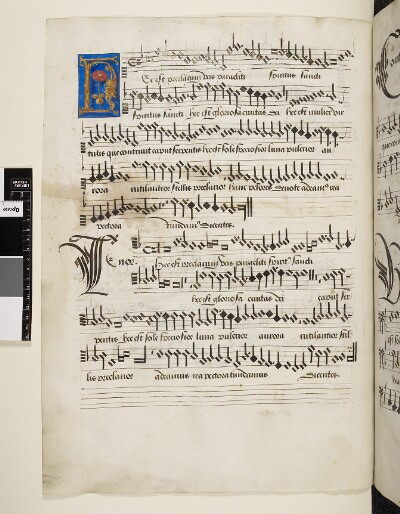 Hec est preclarum vas paracliti spiritus sancti
spiritus sancti hec est gloriosa civitas dei hec est mulier vir
tutis que contrivit caput serpentis hec est sole speciosior luna pulcrior au
rora rutilantior stellis preclarior hanc peccatores devote adeamus rea
pectora tundamus dicentes.
Tenor
Hec est preclarum vas paracliti spiritus sancti
hec est gloriosa civitas dei caput ser
pentis hec est sole speciosior luna pulcrior aurora rutilantior stel
lis preclarior adeamus rea pectora tundamus Dicentes.